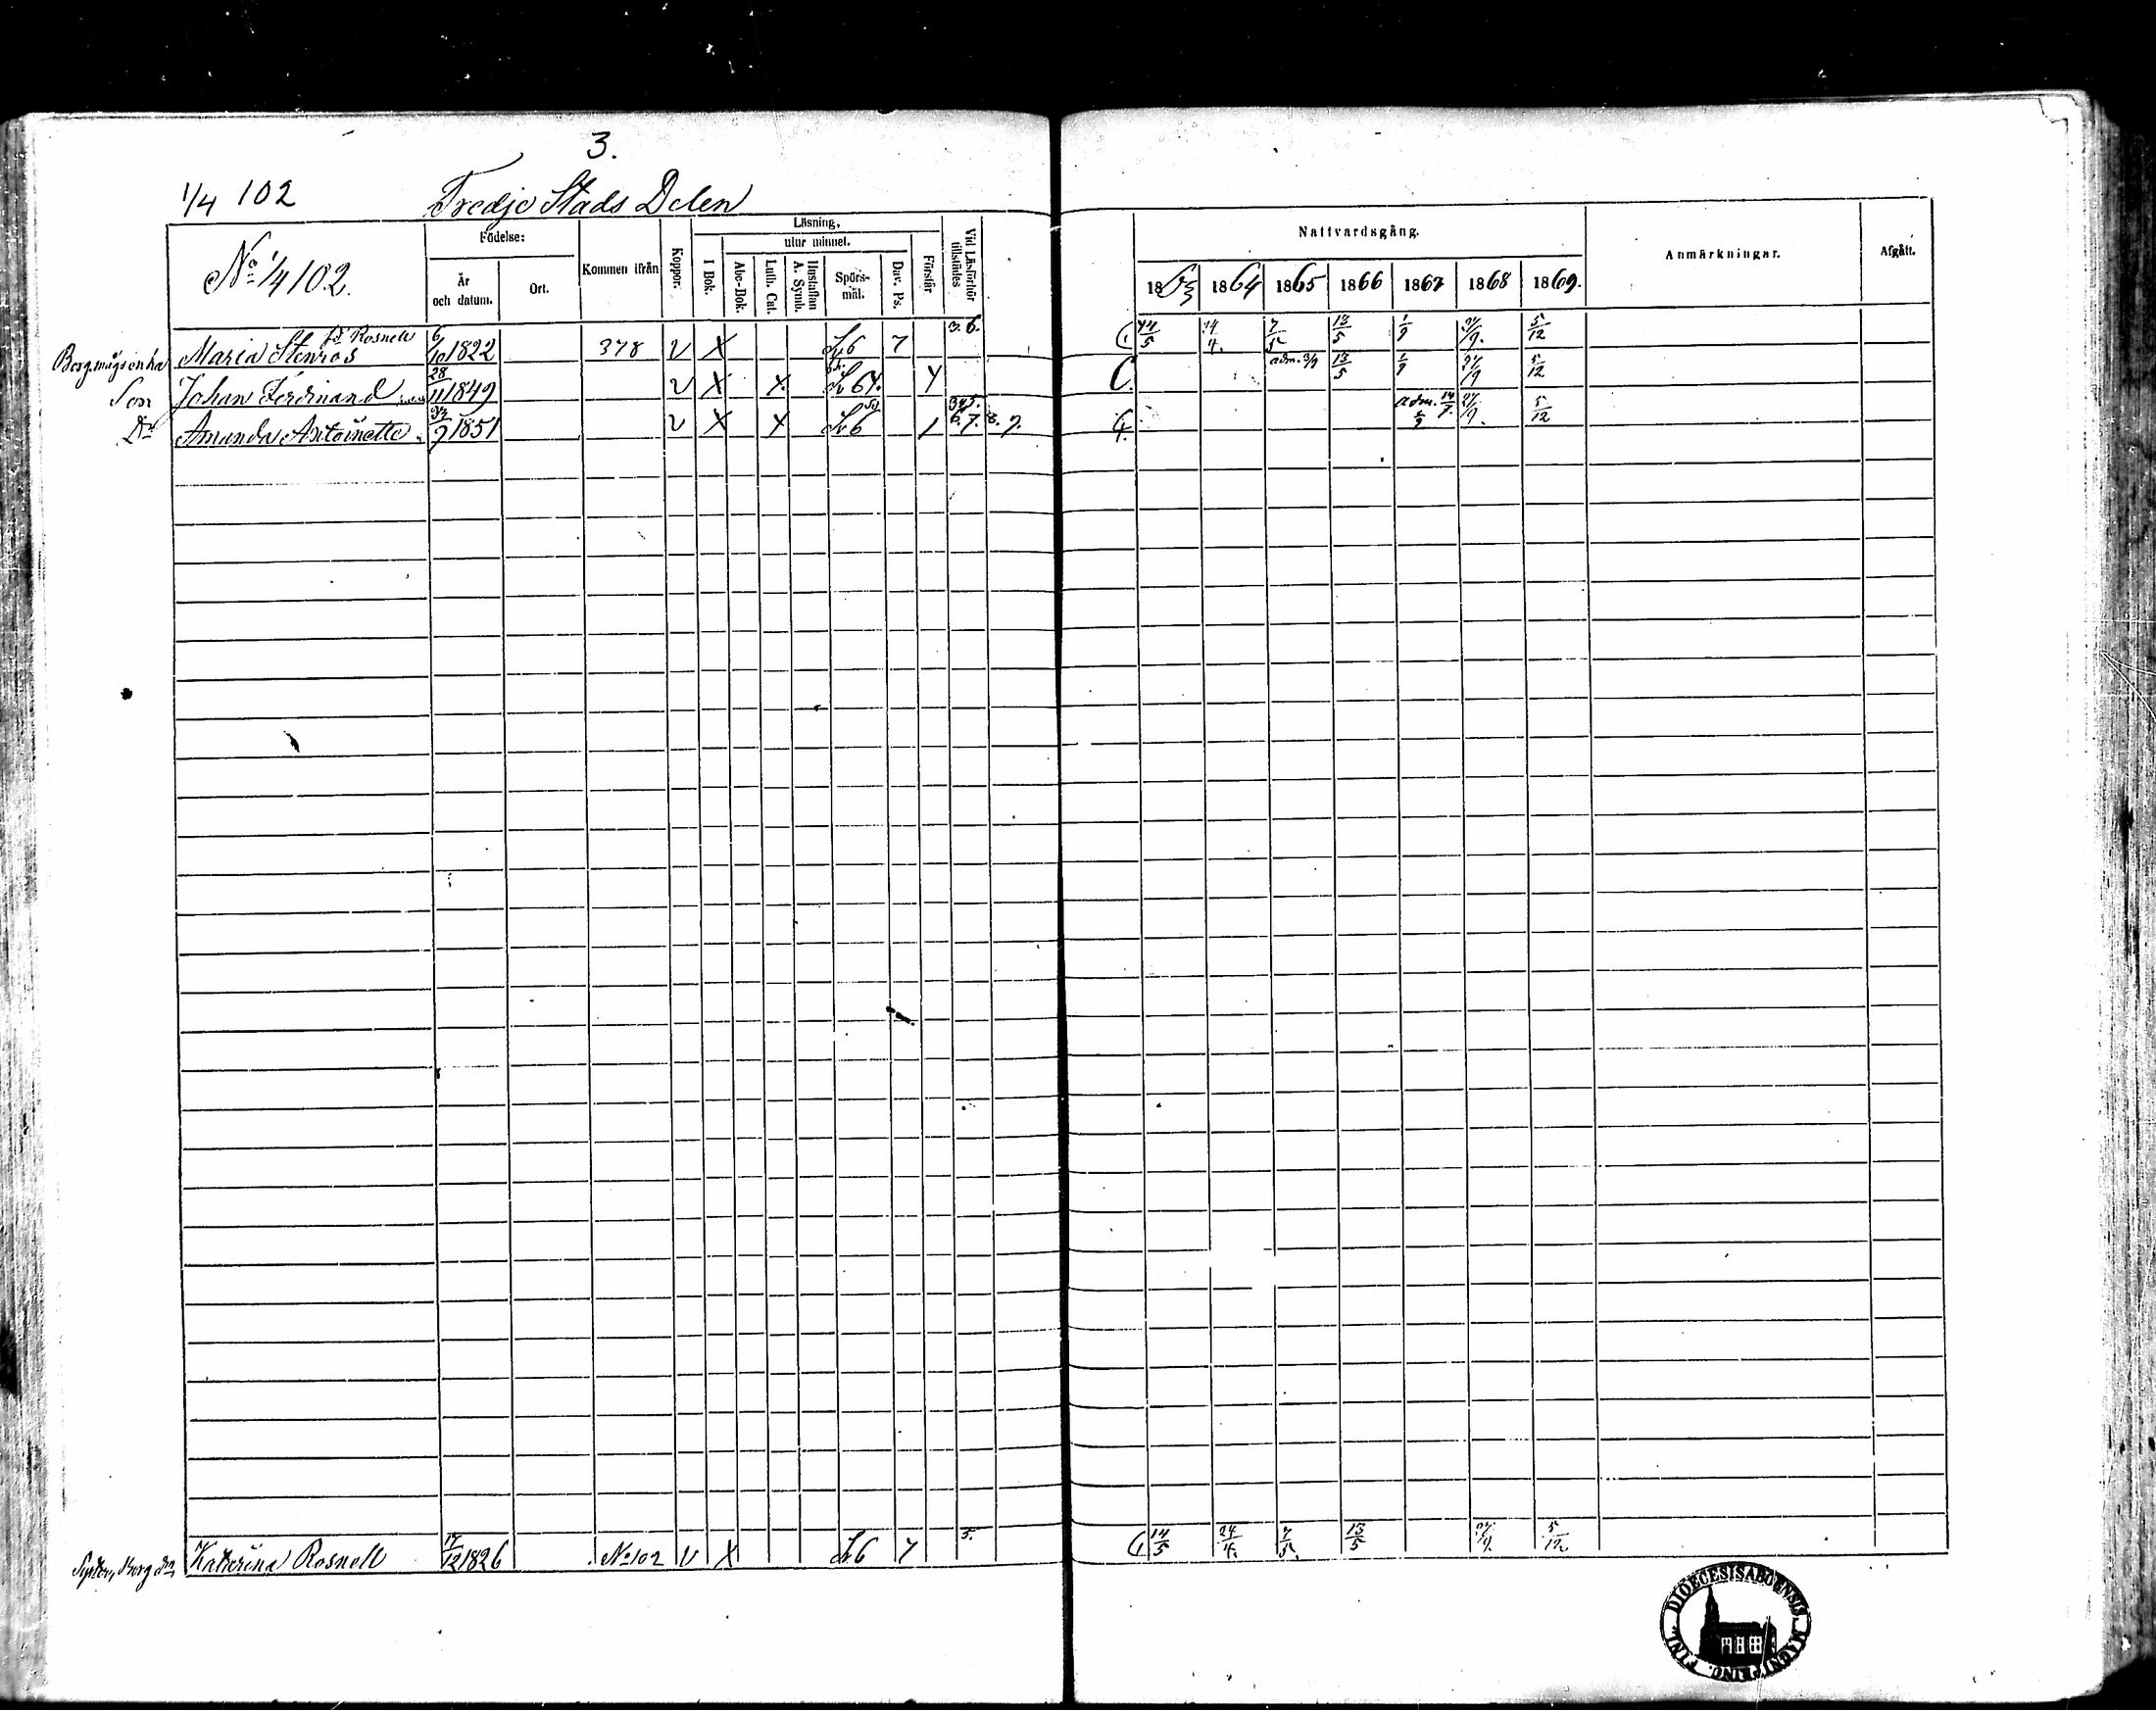 3.
1/4 102 Tredje Stads Delen
No 1/4 102.
Födelse:
År och datum.
Ort.
Kommen ifrån
Koppor.
Läsning,
I Bok.
utur minnet.
Abc-Bok.
Luth. Cat.
Hustaflan A. Symb.
Spörsmål.
Dav. Ps.
Förstår
Vid Läsförhör tillstädes
Nattvardsgång.
1863 1864 1865 1866 1867 1868 1869.
Anmärkningar.
Afgått.
fd Rosnell
Maria Stenros 6/10 1822 378 V X 6 7 3. 6. 5 4. 7/5 13/5 1/9 9. 5/12
Son Johan Ferdinand 28/11 1849 V X X 64. Y adm. 3/9 13/5 1/9 9 5/12
Dr Amanda Antoinette 9 1851 V X X 6 6. 7. 8. 9. adm. 14/7. 9. 5/12
Syster, Katarina Rosnell 17/12 1826 No 102 V X 6 7 5. 14/5 24/4. 7/5. 13/5 9. 5/12
DIOECESIS ABOENSIS MAGNI PRINC. FINL.